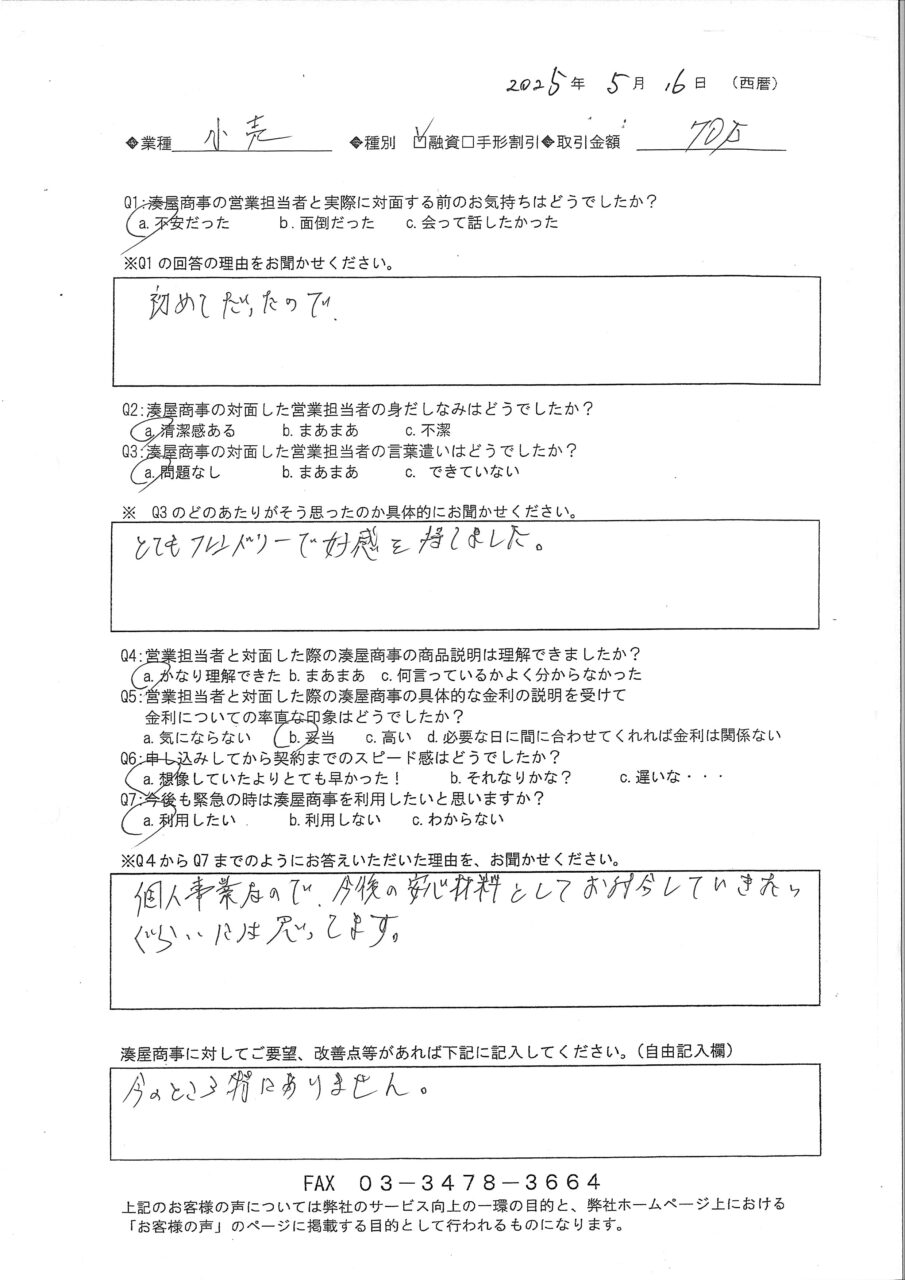 2025年 5月 16日 （西暦）
◆業種 小売 ◆種別 ☑融資□手形割引◆取引金額 70万
Q1:湊屋商事の営業担当者と実際に対面する前のお気持ちはどうでしたか？
a.不安だった b.面倒だった c.会って話したかった
※Q1の回答の理由をお聞かせください。
初めてだったので.
Q2:湊屋商事の対面した営業担当者の身だしなみはどうでしたか？
a.清潔感ある b.まあまあ c.不潔
Q3:湊屋商事の対面した営業担当者の言葉遣いはどうでしたか？
a.問題なし b.まあまあ c. できていない
※ Q3のどのあたりがそう思ったのか具体的にお聞かせください。
とてもフレンドリーで好感を持てました。
Q4:営業担当者と対面した際の湊屋商事の商品説明は理解できましたか？
a.かなり理解できた b.まあまあ c.何言っているかよく分からなかった
Q5:営業担当者と対面した際の湊屋商事の具体的な金利の説明を受けて
金利についての率直な印象はどうでしたか？
a.気にならない b.妥当 c.高い d.必要な日に間に合わせてくれれば金利は関係ない
Q6:申し込みしてから契約までのスピード感はどうでしたか？
a.想像していたよりとても早かった！ b.それなりかな？ c.遅いな・・・
Q7:今後も緊急の時は湊屋商事を利用したいと思いますか？
a.利用したい b.利用しない c.わからない
※Q4からQ7までのようにお答えいただいた理由を、お聞かせください。
個人事業なので、今後の安心材料としてお付合していきたい
ぐらいには思ってます。
湊屋商事に対してご要望、改善点等があれば下記に記入してください。（自由記入欄）
今のところ特にありません。
FAX 03－3478－3664
上記のお客様の声については弊社のサービス向上の一環の目的と、弊社ホームページ上における
「お客様の声」のページに掲載する目的として行われるものになります。